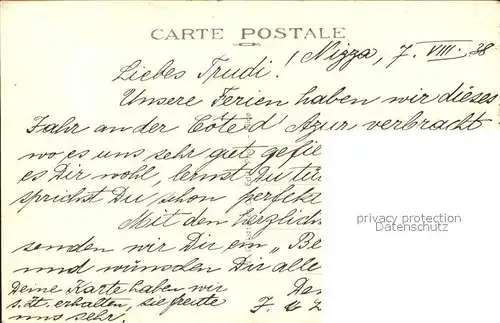 CARTE POSTALE
Nizza, 7. VIII. 38
Liebes Trudi!
Unsere Ferien haben wir dieses
Jahr an der Côte d'Azur verbracht
wo es uns sehr gut gefie
es Dir wohl, lernst Du tür
sprichst Du schon perfekt
Mit den herzlich
senden wir Dir ein „Be
und wünschen Dir alle
Deine Karte haben wir
s. Zt. erhalten, sie freute
uns sehr.
De
F. u
privacy protection
Datenschutz